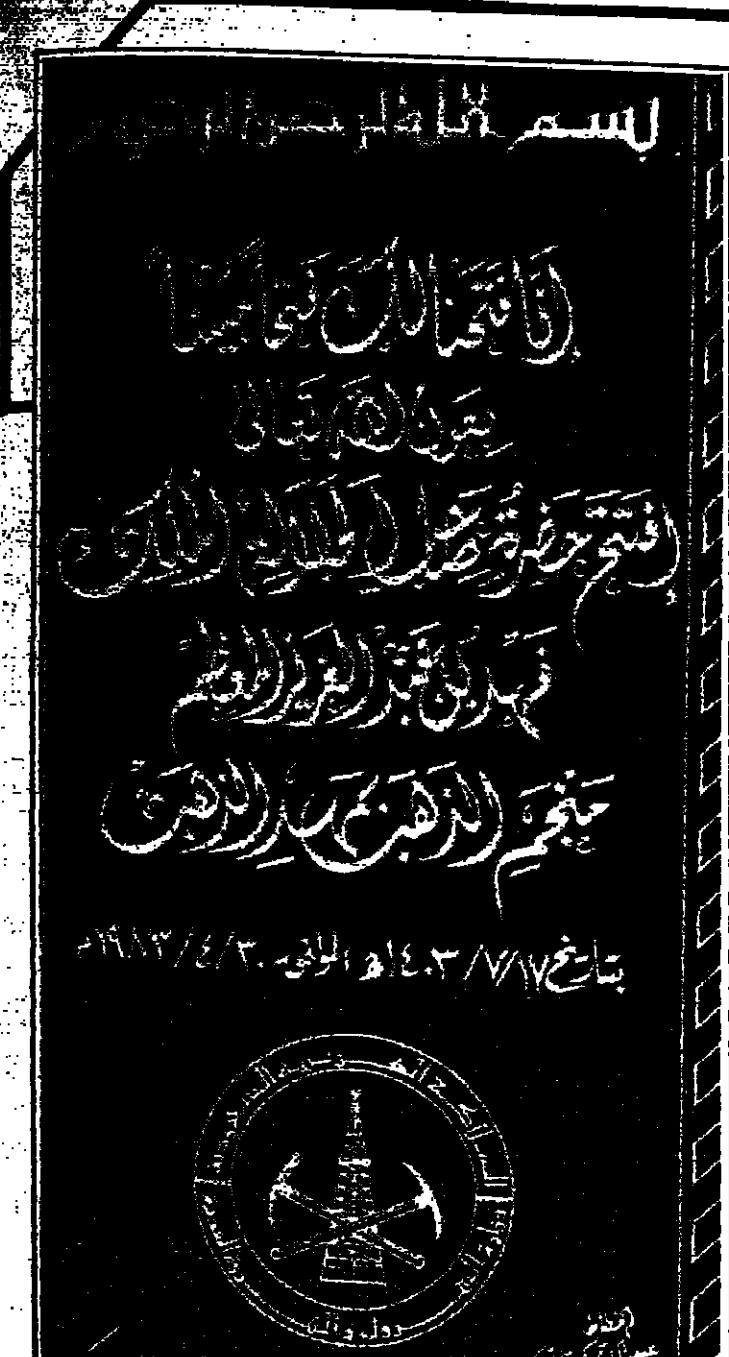 بسم الله الرحمن الرحيم
إنا فتحنا لك فتحا مبينا
بعون الله تعالى
افتتح حضرة صاحب الجلالة الملك
فهد بن عبد العزيز المعظم
منجم الذهب بمهد الذهب
بتاريخ ١٤٠٣/٧/١٧هـ الموافق ١٩٨٣/٤/٣٠م